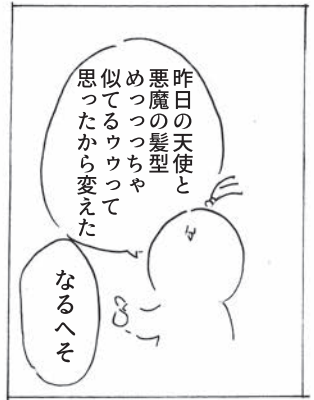 昨日の天使と
悪魔の髪型
めっっっちゃ
似てるゥゥって
思ったから変えた
なるへそ